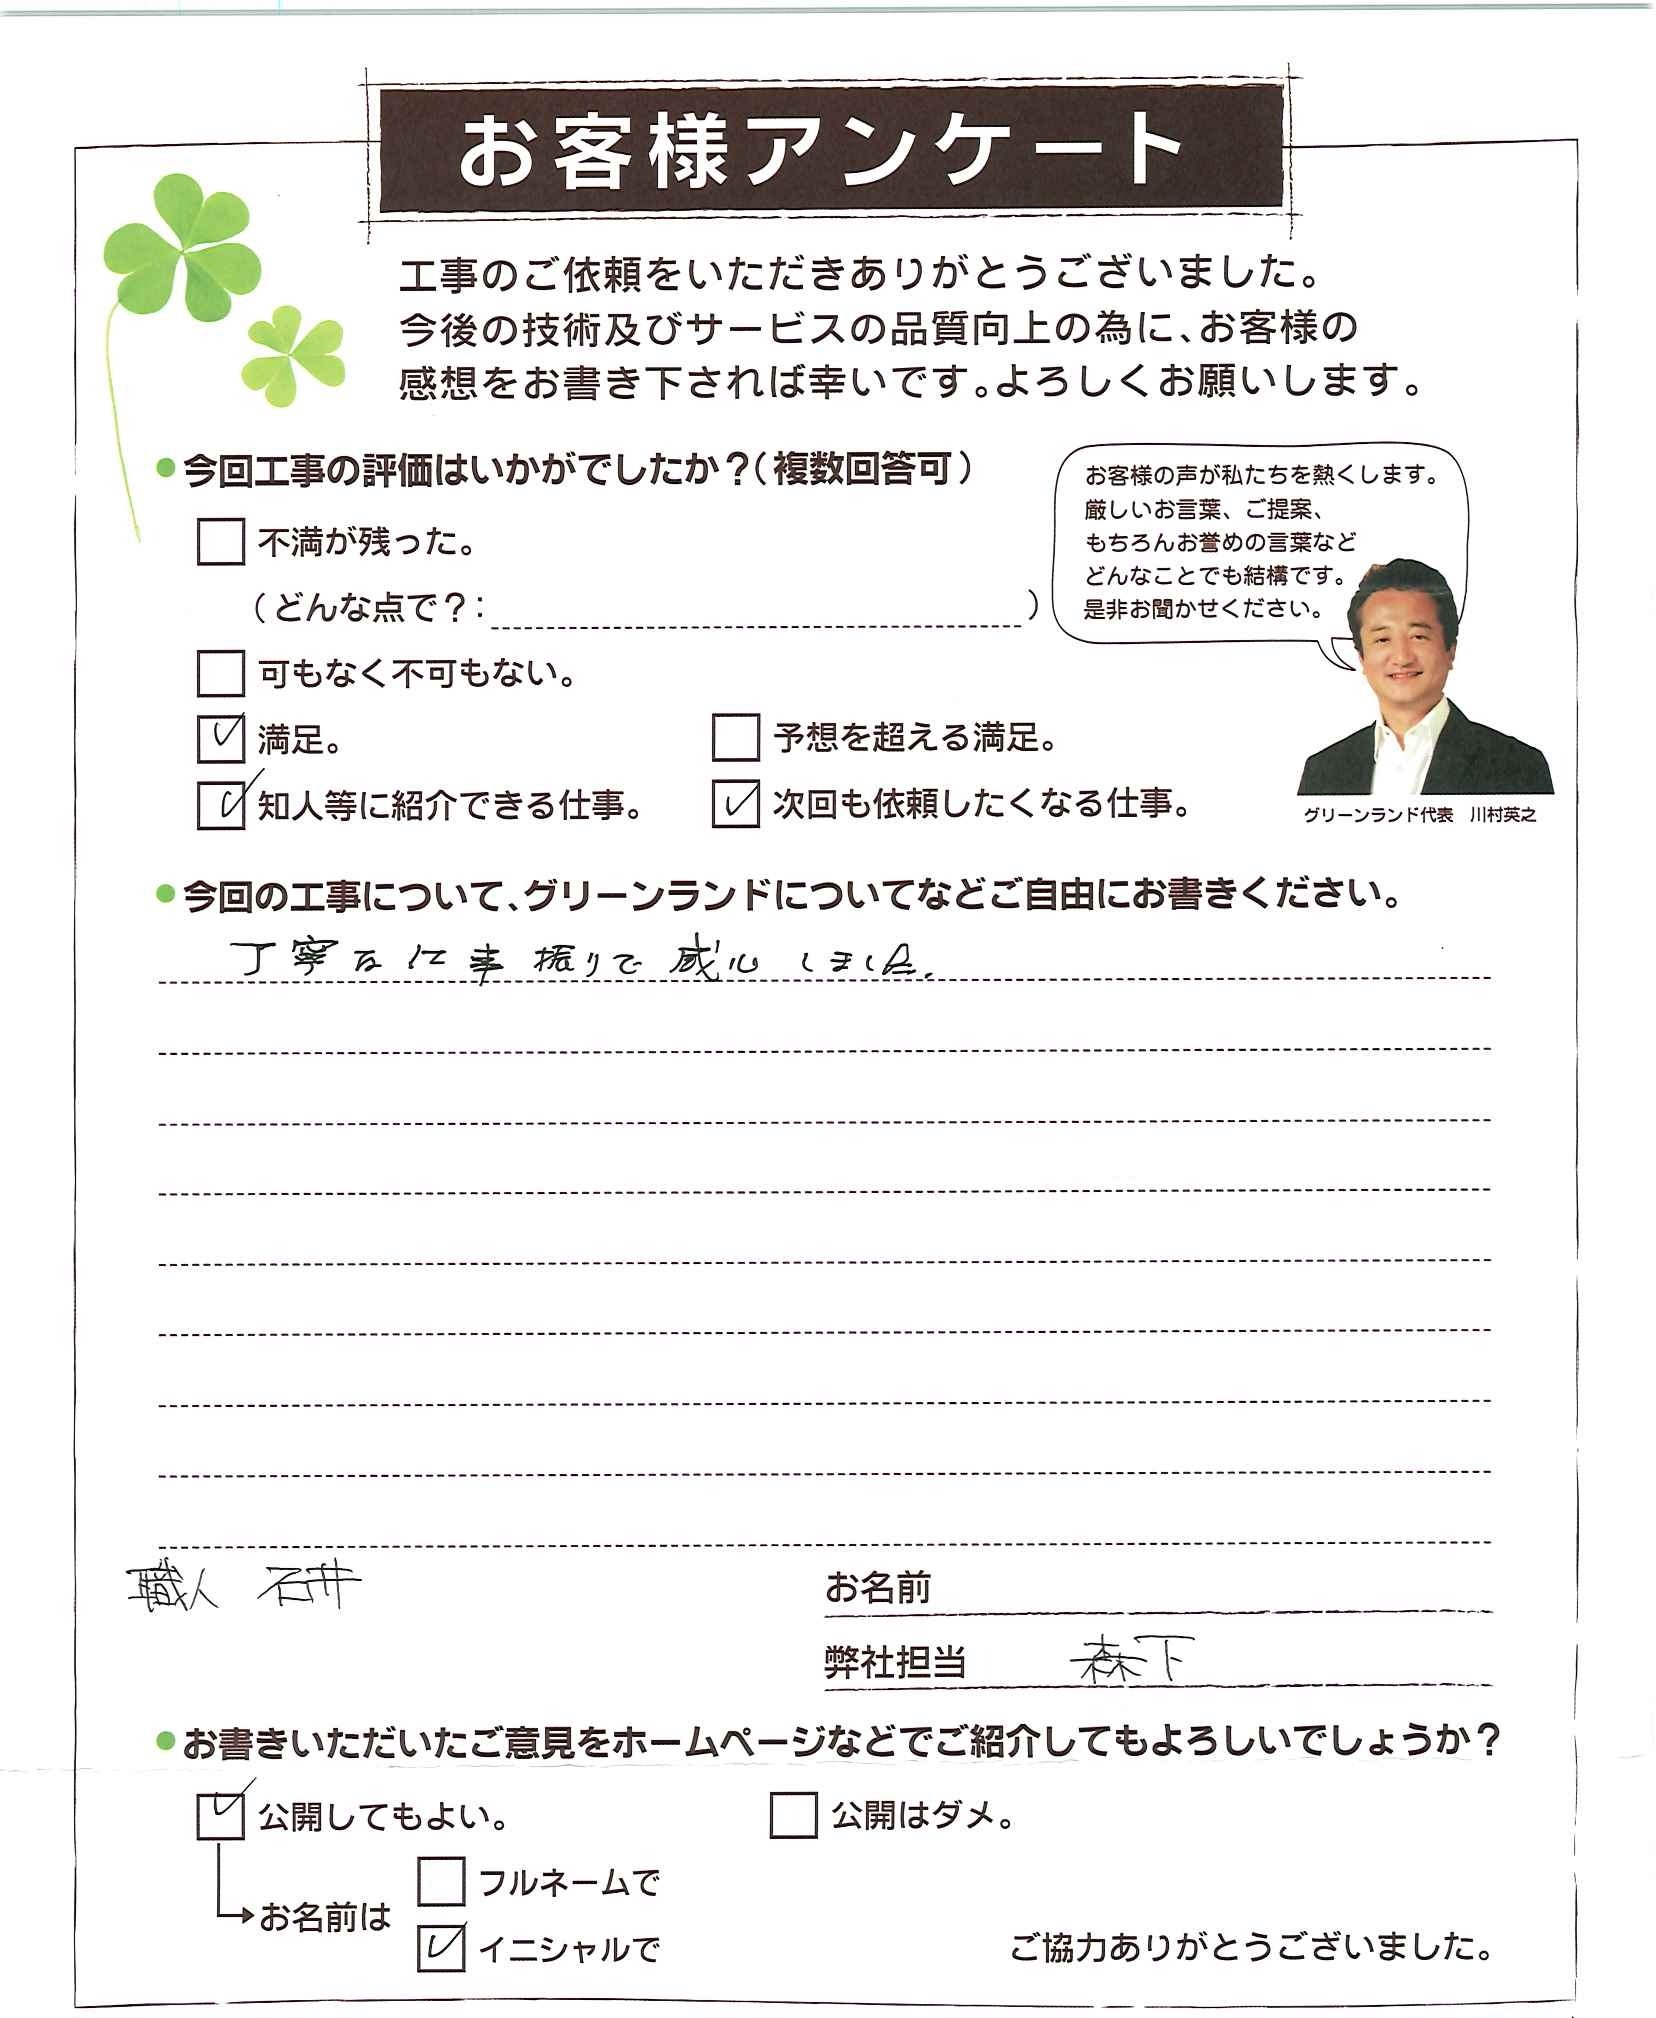 お客様アンケート
工事のご依頼をいただきありがとうございました。
今後の技術及びサービスの品質向上の為に、お客様の
感想をお書き下されば幸いです。よろしくお願いします。
今回工事の評価はいかがでしたか？(複数回答可)
不満が残った。
(どんな点で？: )
可もなく不可もない。
満足。
予想を超える満足。
知人等に紹介できる仕事。
次回も依頼したくなる仕事。
お客様の声が私たちを熱くします。
厳しいお言葉、ご提案、
もちろんお誉めの言葉など
どんなことでも結構です。
是非お聞かせください。
グリーンランド代表 川村英之
今回の工事について、グリーンランドについてなどご自由にお書きください。
丁寧な仕事振りで感心しました。
職人 石井
お名前
弊社担当 森下
お書きいただいたご意見をホームページなどでご紹介してもよろしいでしょうか？
公開してもよい。
公開はダメ。
お名前は
フルネームで
イニシャルで
ご協力ありがとうございました。